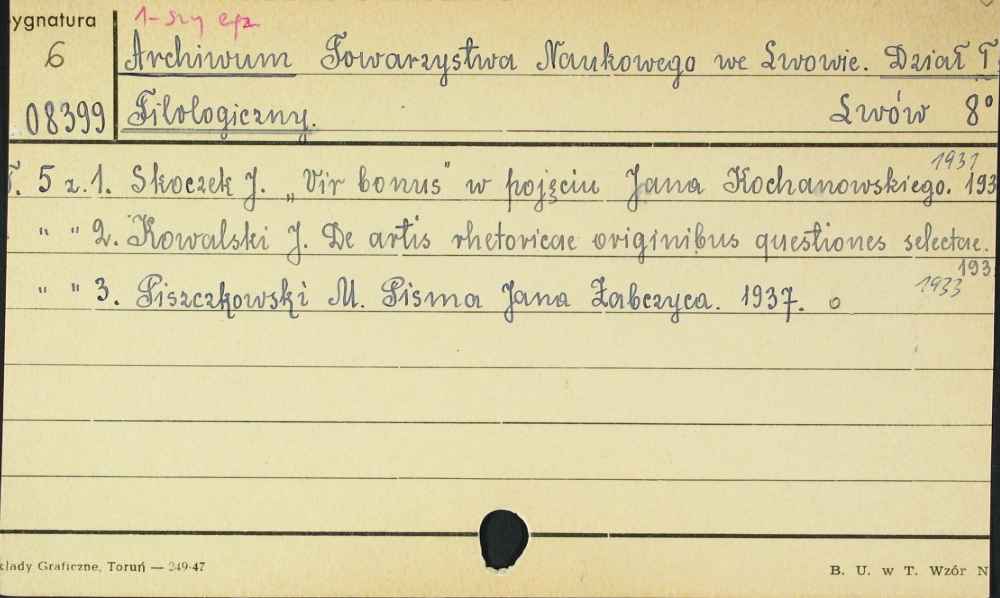 ygnatura 1-szy egz
6 Archiwum Towarzystwa Naukowego we Lwowie. Dział I.
08399 Filologiczny. Lwów 8°
1931
T. 5 z. 1. Skoczek J. „Vir bonus" w pojęciu Jana Kochanowskiego. 193
" " 2. Kowalski J. De artis rhetoricae originibus questiones selectae.
193
1933
" " 3. Piszczkowski M. Pisma Jana Żabczyca. 1937. o
kłady Graficzne, Toruń — 249-47 B. U. w T. Wzór N